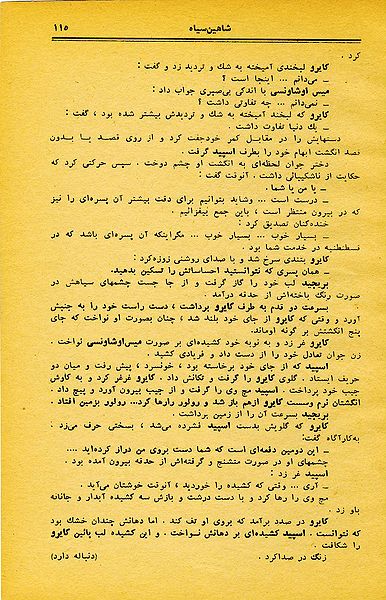 شاهین‌سیاه ۱۱۵
کرد .
کایرو لبخندی آمیخته به شک و تردید زد و گفت :
ـ می‌دانم ... اینجا است ؟
میس اوشاونسی با اندکی بی‌صبری جواب داد :
ـ نمی‌دانم ... چه تفاوتی داشت ؟
کایرو که لبخند آمیخته به شک و تردیدش بیشتر شده بود ، گفت :
ـ یک دنیا تفاوت داشت .
دستهایش را در مقابل کمر خودجفت کرد و از روی قصد یا بدون
قصد انگشت ابهام خود را بطرف اسپید گرفت .
دختر جوان لحظه‌ای به انگشت او چشم دوخت . سپس حرکتی کرد که
حکایت از ناشکیبائی داشت . آنوقت گفت :
ـ یا من یا شما .
ـ درست است ... وشاید بتوانیم برای دقت بیشتر آن پسره‌ای را نیز
که در بیرون منتظر است ، باین جمع بیفزائیم .
خنده‌کنان تصدیق کرد :
ـ بسیار خوب ... بسیار خوب ... مگراینکه آن پسره‌ای باشد که در
قسطنطنیه در خدمت شما بود .
کایرو بتندی سرخ شد و با صدای روشنی زوزه‌کرد :
ـ همان پسری که نتوانستید احساساتش را تسکین بدهید.
بریجید لب خود را گاز گرفت و از جا جست چشمهای سیاهش در
صورت رنگ باخته‌اش از حدقه درآمد .
بسرعت دو قدم به طرف کایرو برداشت ، دست راست خود را به جنبش
آورد و وقتی که کایرو از جای خود بلند شد ، چنان بصورت او نواخت که جای
پنج انگشتش بر گونه اوماند.
کایرو غر زد و به نوبه خود کشیده‌ای بر صورت میس‌اوشاونسی نواخت .
زن جوان تعادل خود را از دست داد و فریادی کشید .
اسپید که از جای خود برخاسته بود ، خونسرد ، پیش رفت و میان دو
حریف ایستاد . گلوی کایرو را گرفت و تکانش داد . کایرو غرغر کرد و به کاوش
جیب خود پرداخت . اسپید مچ وی را گرفت و از جیب بیرون آورد و پیچ داد .
انگشتان نرم وسست کایرو ازهم باز شد و رولور رارها کرد... رولور بزمین افتاد .
بریجید بسرعت آن را از زمین برداشت .
کایرو که گلویش بدست اسپید فشرده می‌شد ، بسختی حرف می‌زد .
به‌کارآگاه گفت:
ـ این دومین دفعه‌ای است که شما دست بروی من دراز کرده‌اید ...
چشمهای او در صورت متشنج و گرفته‌اش از حدقه بیرون آمده بود .
اسپید غر زد :
ـ آری ... وقتی که کشیده را خوردید ، آنوقت خوشتان می‌آید .
مچ وی را رها کرد و با دست درشت و بازش سه کشیده آبدار و جانانه
باو زد .
کایرو در صدد برآمد که بروی او تف کند . اما دهانش چندان خشک بود
که نتوانست . اسپید کشیده‌ای بر دهانش نواخت . و این کشیده لب پائین کایرو
را شکافت .
زنگ در صداکرد . (دنباله دارد)